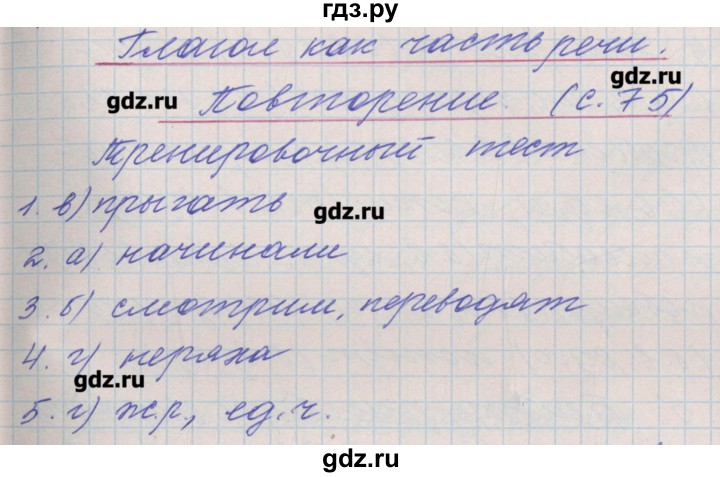 гдз.ру
Глагол как часть речи.
gdz.ru
gdz.ru
Повторение. (с. 75)
Тренировочный тест
1. в) прыгать
gdz.ru
2. а) начинали
3. б) смотрим, переводят
4. г) неряха
gdz.ru
5. г) ж.р., ед.ч.
gdz.ru